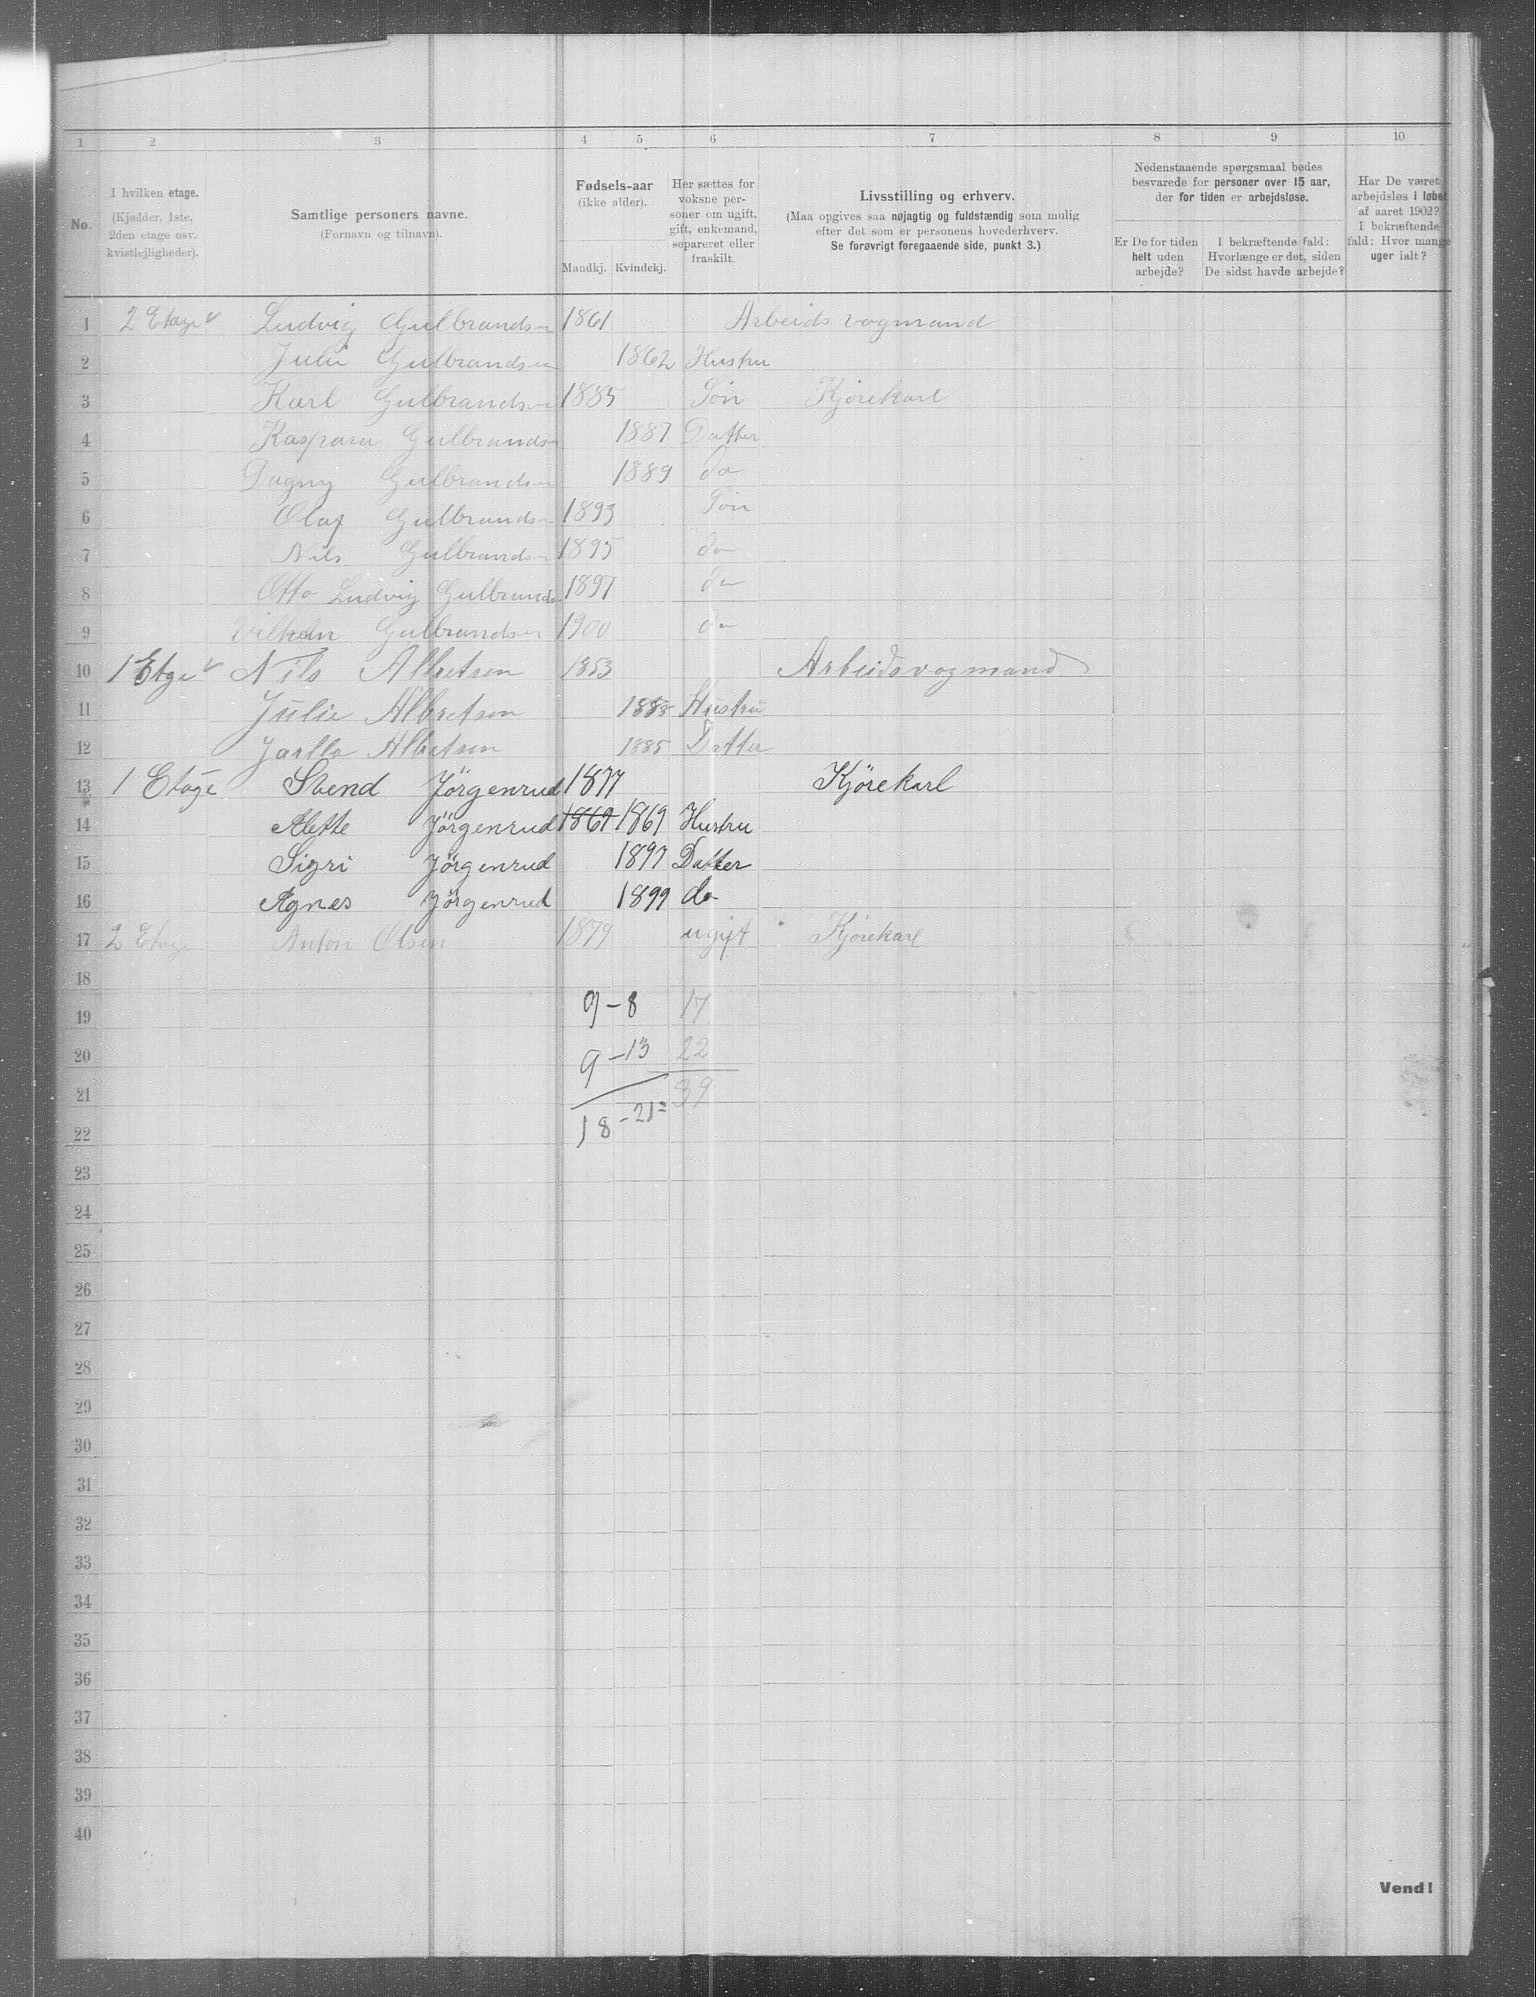 1 2 3 4 5 6 7 8 9 10
No.
I hvilken etage.
(Kjælder, 1ste,
2den etage osv.
kvistlejligheder).
Samtlige personers navne.
(Fornavn og tilnavn).
Fødsels-aar
(ikke alder).
Mandkj. Kvindekj.
Her sættes for
voksne per-
soner om ugift,
gift, enkemand,
separeret eller
fraskilt.
Livsstilling og erhverv.
(Maa opgives saa nøjagtig og fuldstændig som mulig
efter det som er personens hovederhverv.
Se forøvrigt foregaaende side, punkt 3.)
Nedenstaaende spørgsmaal bedes
besvarede for personer over 15 aar,
der for tiden er arbejdsløse.
Er De for tiden
helt uden
arbejde?
I bekræftende fald:
Hvorlænge er det, siden
De sidst havde arbejde?
Har De været
arbejdsløs i løbet
af aaret 1902?
I bekræftende
fald: Hvor mange
uger ialt?
1 2 Etage Ludvig Gulbrandsen 1861 Arbeidsvogmand
2 Julie Gulbrandsen 1862 Hustru
3 Karl Gulbrandsen 1885 Søn Kjørekarl
4 Kaspara Gulbrandsen 1887 Datter
5 Dagny Gulbrandsen 1889 do
6 Olaf Gulbrandsen 1893 Søn
7 Nils Gulbrandsen 1895 do
8 Otto Ludvig Gulbrands 1897 do
9 Gulbrandsen 1900 do
10 1 Etge Nils Albretsen 1853 Arbeidsvogmand
11 Julie Albretsen Hustru
12 Albretsen 1885 Datter
13 1 Etage Svend Jörgenrud 1877 Kjörekarl
14 Alette Jörgenrud 1869 1869 Hustru
15 Sigri Jörgenrud 1897 Datter
16 Agnes Jörgenrud 1899 do
17 2 Etage Anton Olsen 1879 ugift Kjörekarl
18
19 9-8 17
20 9-13 22
21 39
22 18-21=
23
24
25
26
27
28
29
30
31
32
33
34
35
36
37
38
39
40
Vend!